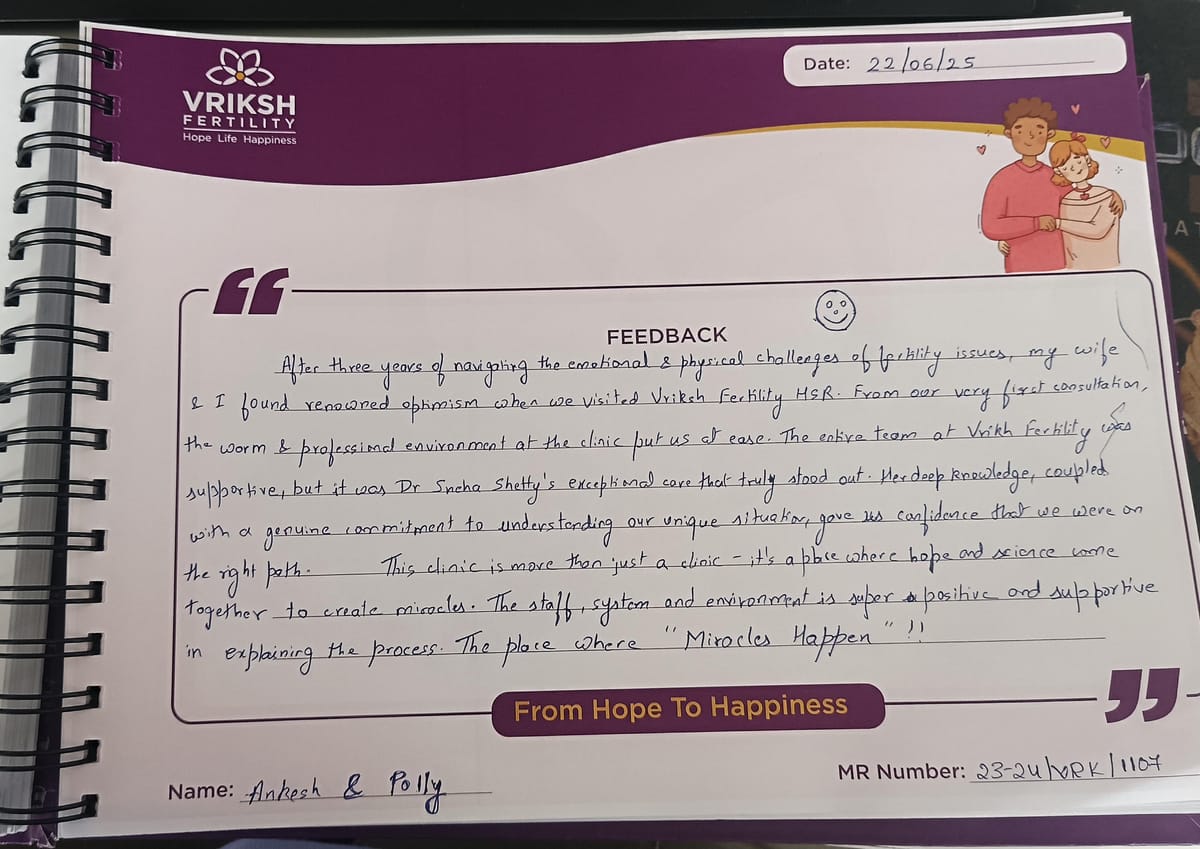 VRIKSH
FERTILITY
Hope Life Happiness
Date: 22/06/25
FEEDBACK
After three years of navigating the emotional & physical challenges of fertility issues, my wife
& I found renowned optimism when we visited Vriksh Fertility HSR. From our very first consultation,
the warm & professional environment at the clinic put us at ease. The entire team at Vrikh Fertility was
supportive, but it was Dr Sneha Shetty's exceptional care that truly stood out. Her deep knowledge, coupled
with a genuine commitment to understanding our unique situation, gave us confidence that we were on
the right path. This clinic is more than just a clinic - it's a place where hope and science come
together to create miracles. The staff, system and environment is super positive and supportive
in explaining the process. The place where "Miracles Happen" !!
From Hope To Happiness
Name: Ankesh & Polly
MR Number: 23-24/VRK/1107